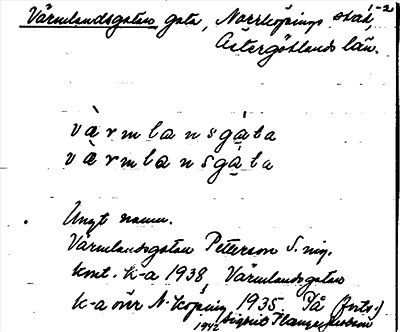 1-2
Värmlandsgatan gata, Norrköpings stad,
Östergötlands län.
vàrmlansgáta
vàrmlansgáta
Ungt namn.
Värmlandsgatan Peterson S. nig.
knt. k-a 1938 Värmlandsgatan
k-a över N-köping 1935. På (forts.)
1942 Sigurd